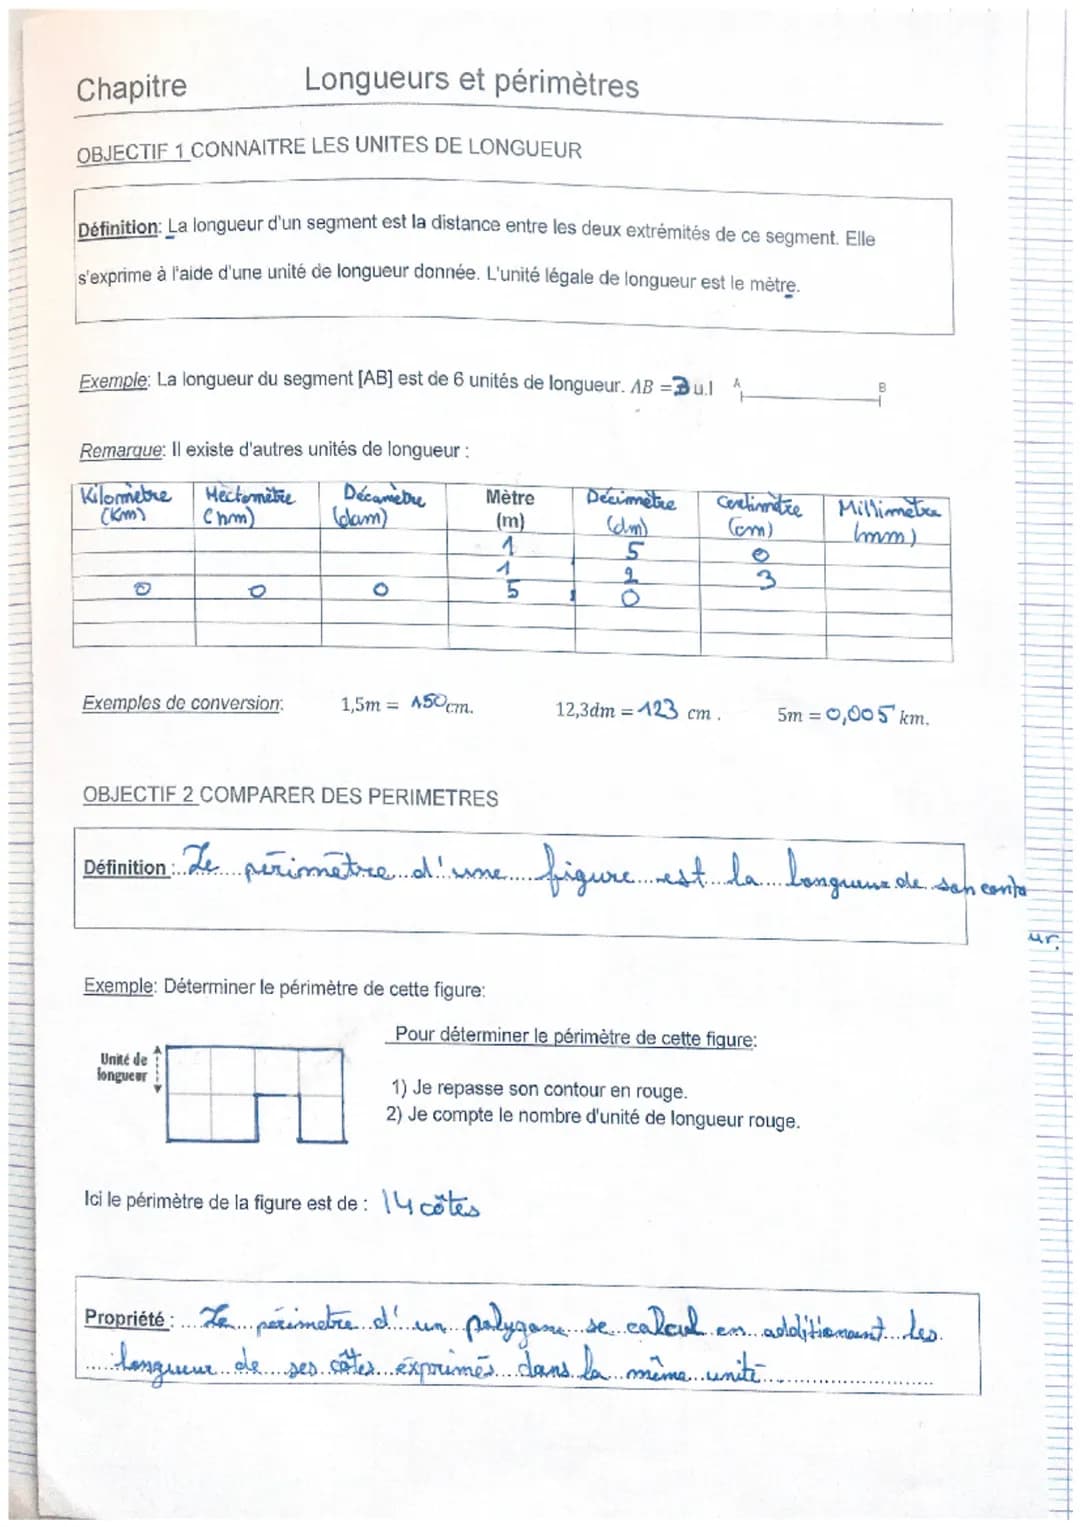 Chapitre Longueurs et périmètres
OBJECTIF 1 CONNAITRE LES UNITES DE LONGUEUR
Définition: La longueur d'un segment est la distance entre les deux extrémités de ce segment. Elle
s'exprime à l'aide d'une unité de longueur donnée. L'unité légale de longueur est le mètre.
Exemple: La longueur du segment [AB] est de 6 unités de longueur. AB = 3 u.l A B
Remarque: Il existe d'autres unités de longueur :
Kilomètre Hectomètre Décamètre Mètre Décimètre Centimètre Millimètre
(Km) (hm) (dam) (m) (dm) (cm) (mm)
1 5 0
1 2 3
0 0 0 5 0
Exemples de conversion: 1,5m = 150 cm. 12,3dm = 123 cm . 5m = 0,005 km.
OBJECTIF 2 COMPARER DES PERIMETRES
Définition : Le périmètre d'une figure est la longueur de son conto
ur.
Exemple: Déterminer le périmètre de cette figure:
Pour déterminer le périmètre de cette figure:
Unité de
longueur
1) Je repasse son contour en rouge.
2) Je compte le nombre d'unité de longueur rouge.
Ici le périmètre de la figure est de : 14 côtés
Propriété : Le périmetre d'un polygone se calcul en additionant les
longueur de ses côtes éxprimés dans la même unité